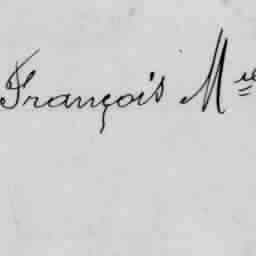 François Mel